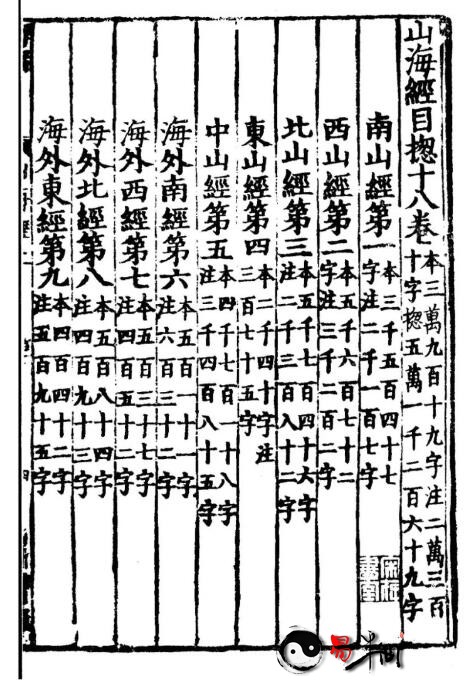 山海經目揔十八卷 本三萬九百十九字注二萬三百
十字揔五萬一千二百六十九字
南山經第一 本三千五百四十七
字注二千一百七字
西山經第二 本五千六百七十二
字注三千二百二字
北山經第三 本五千七百四十六字
注二千三百八十二字
東山經第四 本二千四十字注
三百七十五字
中山經第五 本四千七百一十八字
注三千四百八十五字
海外南經第六 本五百一十一字
注六百三十二字
海外西經第七 本五百三十七字
注四百五十二字
海外北經第八 本五百八十四字
注四百九十三字
海外東經第九 本四百四十二字
注五百九十五字
易